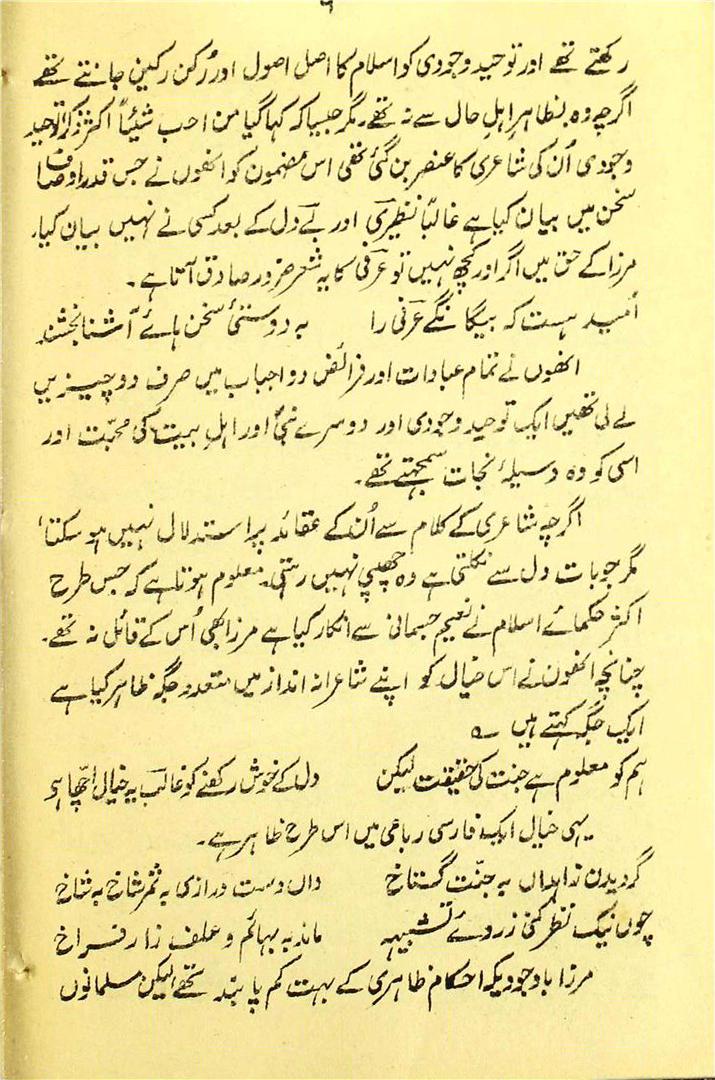 ۹
رکھتے تھے اور توحید وجودی کو اسلام کا اصل اصول اور رُکن رکین جانتے تھے
اگرچہ وہ بظاہر اہلِ حال سے نہ تھے۔ مگر جیسا کہ کہا گیا من احب شیئاً اکثر ذکرہ توحید
وجودی اُن کی شاعری کا عنصر بن گئی تھی اس مضمون کو انھوں نے جس قدر اصناف
سخن میں بیان کیا ہے غالباً نظیری اور بیدل کے بعد کسی نے نہیں بیان کیا۔
مرزا کے حق میں اگر اور کچھ نہیں تو عرفی کا یہ شعر ضرور صادق آتا ہے۔
اُمید ہست کہ بیگانگے عرفی را بہ دوستیٔ سخن ہائے آشنا بخشند
انھوں نے تمام عبادات اور فرائض و واجبات میں صرف دو چیزیں
لے لی تھیں ایک توحید وجودی اور دوسرے نبیؐ اور اہلِ بیت کی محبّت اور
اسی کو وہ وسیلۂ نجات سمجھتے تھے۔
اگرچہ شاعری کے کلام سے اُن کے عقائد پر استدلال نہیں ہو سکتا،
مگر جو بات دل سے نکلتی ہے وہ چھپی نہیں رہتی۔ معلوم ہوتا ہے کہ جس طرح
اکثر حکمائے اسلام نے نعیم جسمانی سے انکار کیا ہے مرزا بھی اُس کے قائل نہ تھے۔
چنانچہ انھوں نے اس خیال کو اپنے شاعرانہ انداز میں متعدد جگہ ظاہر کیا ہے
ایک جگہ کہتے ہیں ؎
ہم کو معلوم ہے جنت کی حقیقت لیکن دل کے خوش رکھنے کو غالب یہ خیال اچّھا ہے
یہی خیال ایک فارسی رباعی میں اس طرح ظاہر ہے۔
گردیدن زاہداں بہ جنّت گستاخ واں دست درازی بہ ثمر شاخ بہ شاخ
چوں نیک نظر کنی ز روئے تشبیہہ ماند بہ بہائم و علف زار فراخ
مرزا باوجودیکہ احکام ظاہری کے بہت کم پابند تھے لیکن مسلمانوں